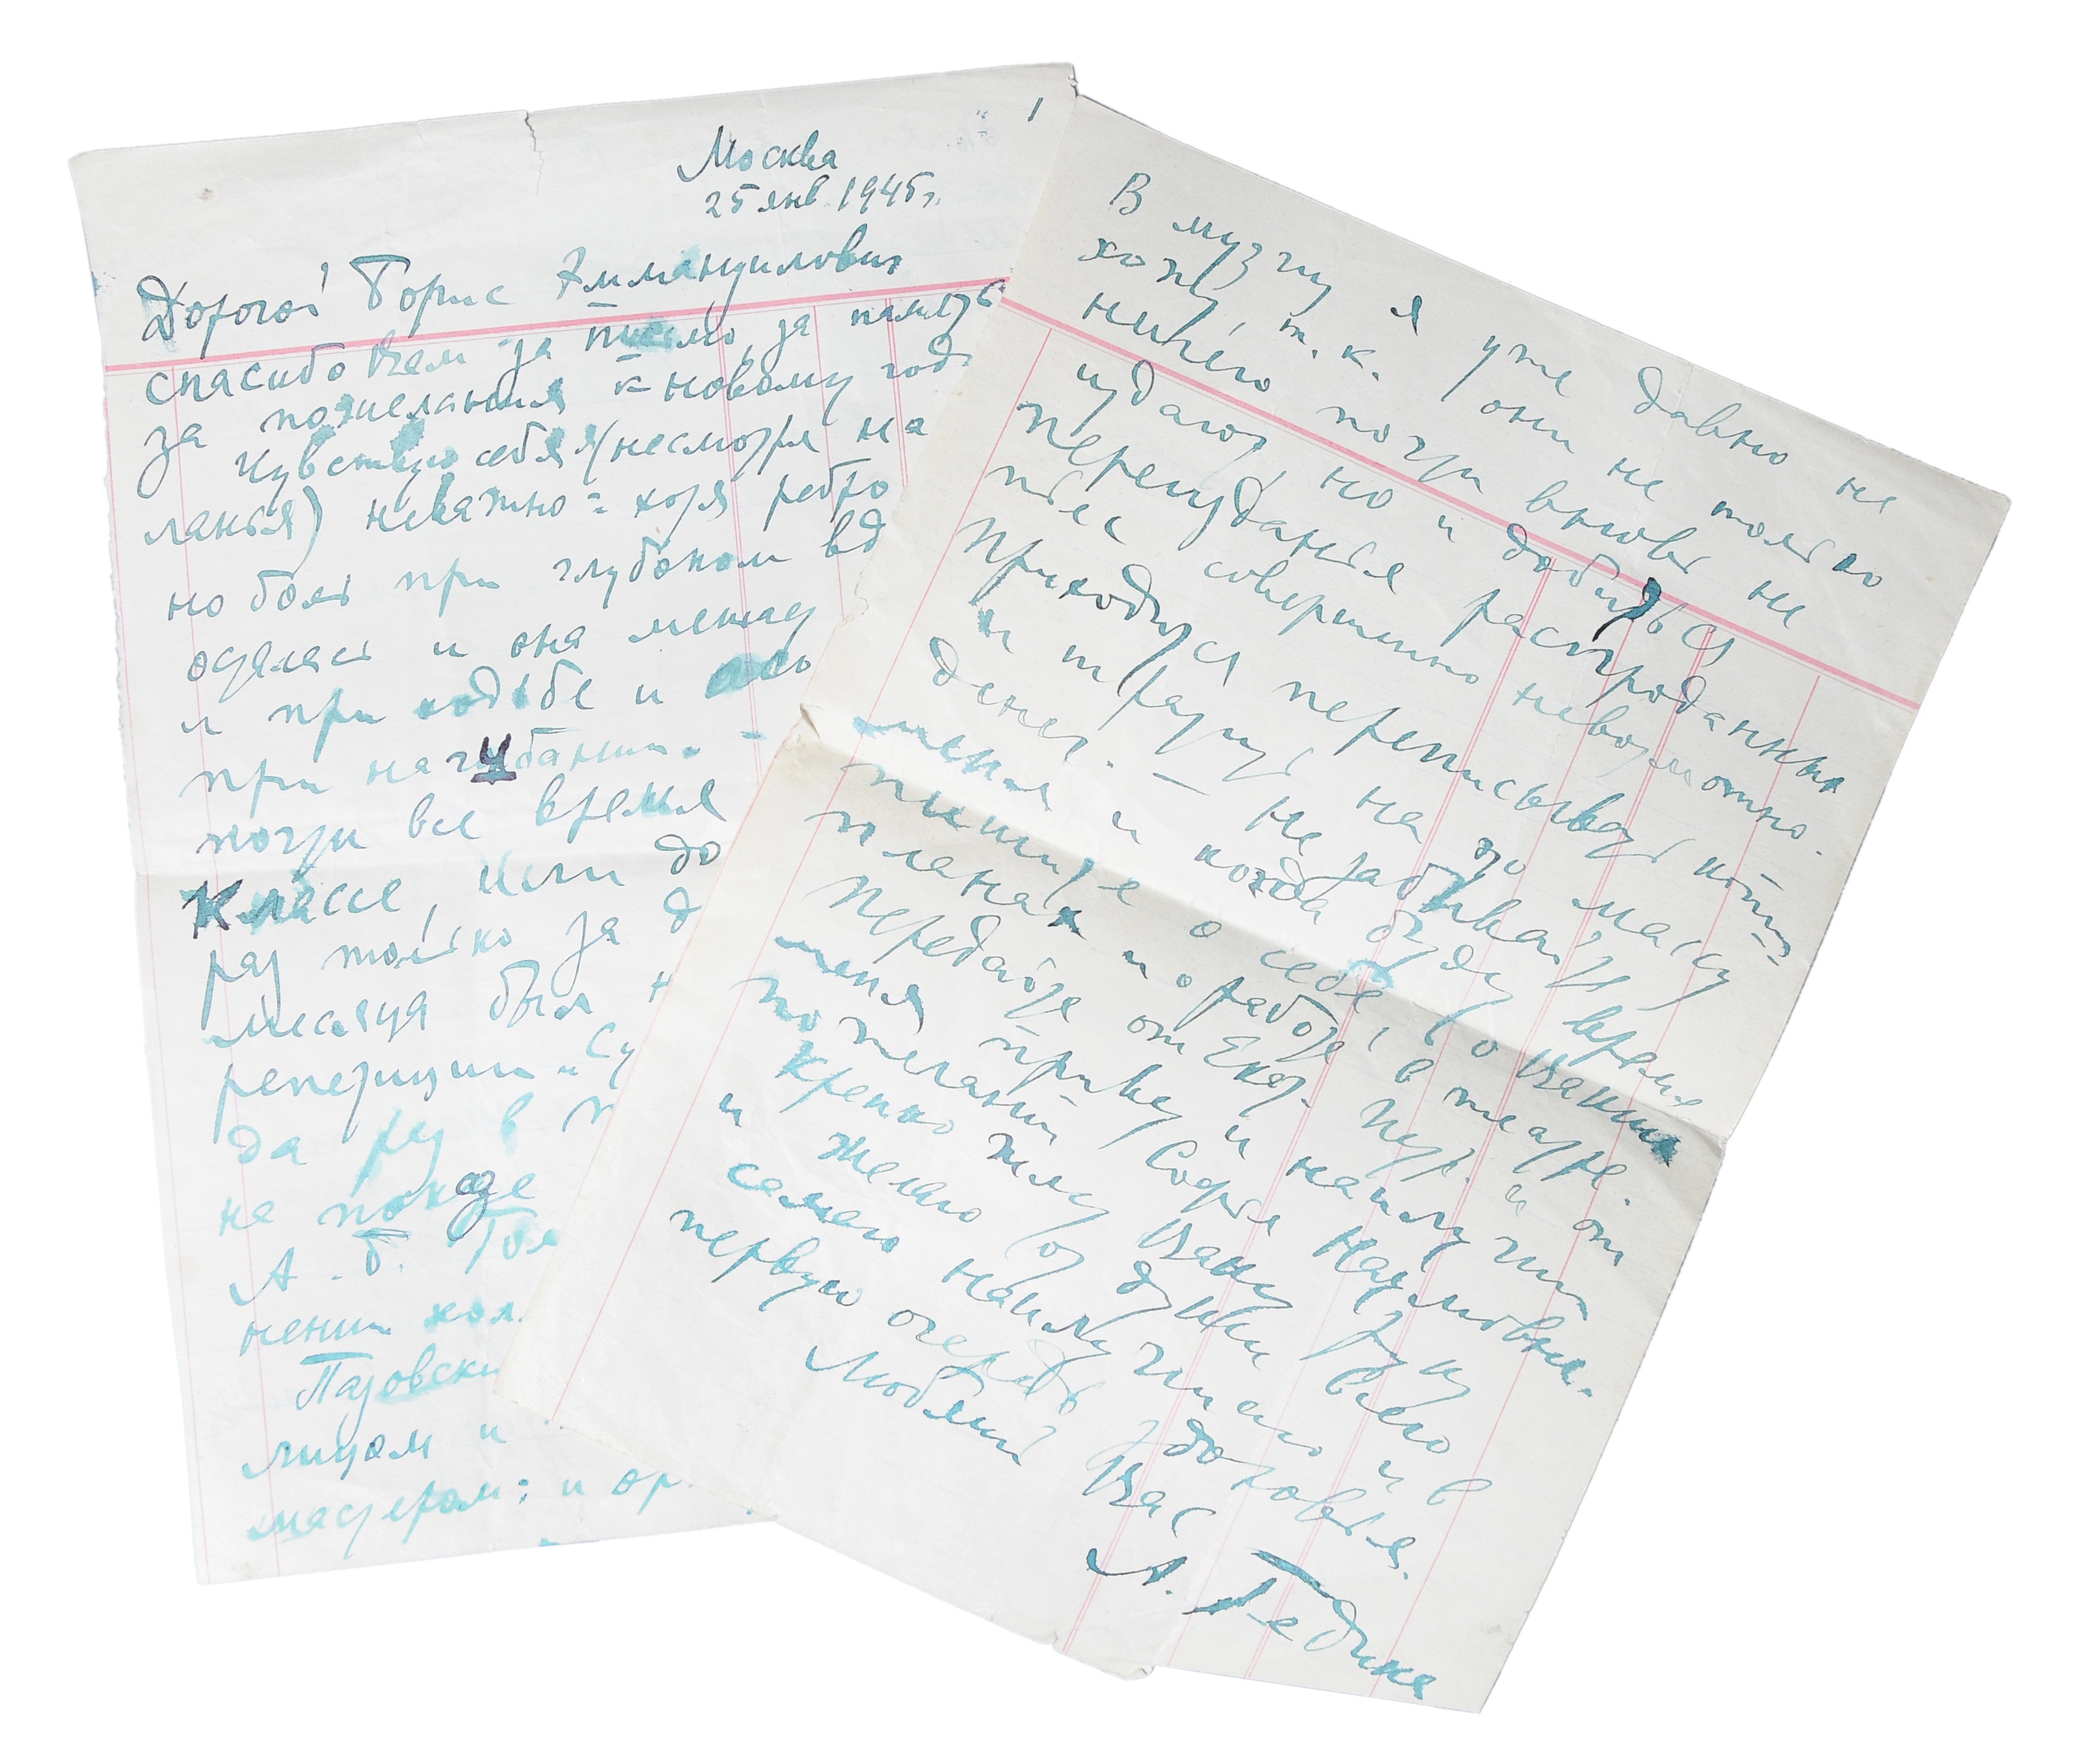 1
Москва
25 янв. 1945 г.
Дорогой Борис Эммануилович
спасибо Вам за письмо, за память
за пожелания к новому год
Чувствую себя (несмотря на
ланья) неважно: хотя ребро
но боль при глубоком вд
осталась и она мешает
и при ходьбе и
при нагибании. -
почти все время
Классе, или до
раз только за д
месяца был н
репетиции „Су
да раз в
на
А. Б. Гол
нении кол.
Пазовски
лицом и
мастером: и ор
В музгиз я уже давно не
хожу, т. к. они не только
ничего почти вновь не
издают, но и добиться
переиздания распроданных
пьес совершенно невозможно.
Приходится переписывать
и тратить на это массу
денег. — Не забывайте
меня и когда будет время
пишите о себе, о Ваших
планах и о работе в театре.
Передайте от Екат. Петр. и от
меня привет и наилучшие
пожелания Софье Наумовне.
Крепко жму Вашу руку
и желаю от души всего
самого наилучшего и в
первую очередь здоровья.
Любящий Вас
А. Гедике